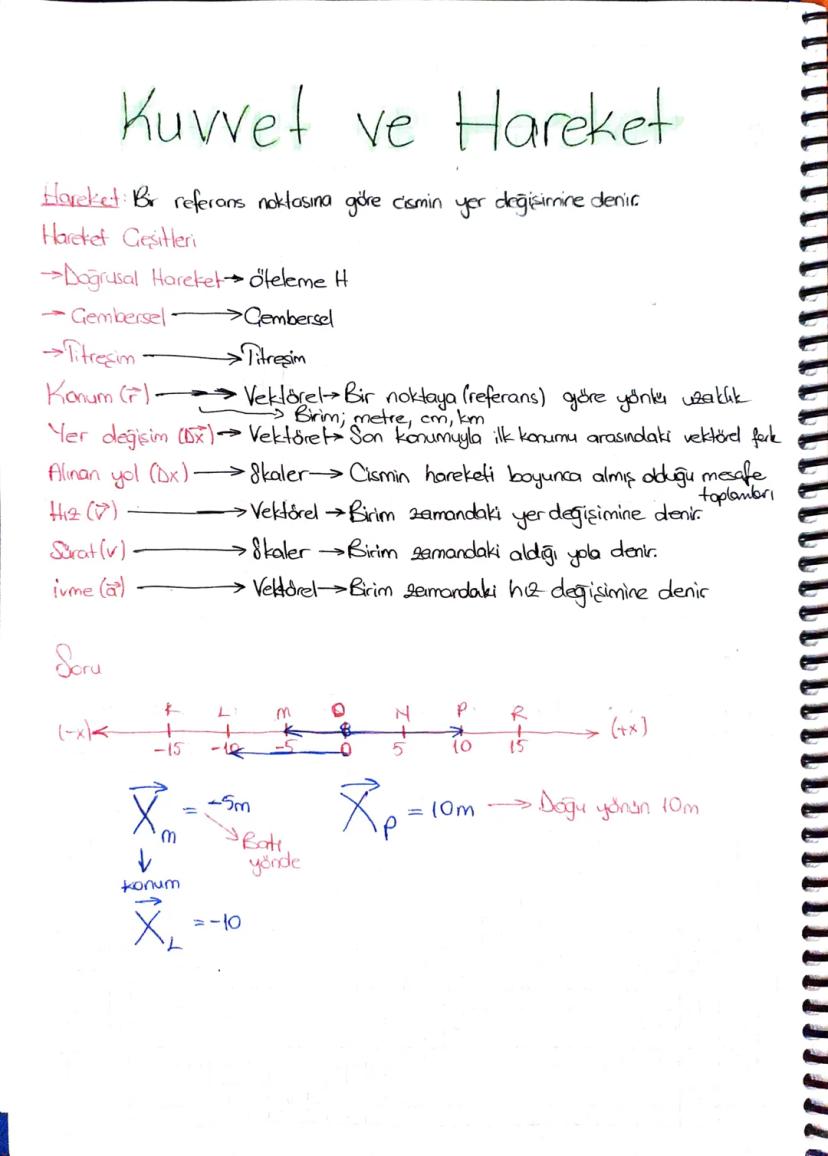 Kuvvet ve Hareket
Hareket: Bir referans noktasına göre cismin yer değişimine denir.
Hareket Çeşitleri
→Doğrusal Hareket→ öteleme H
→ Çembersel → Çembersel
→Titreşim → Titreşim
Konum (r⃗) → Vektörel→ Bir noktaya (referans) göre yönlü uzaklık
→ Birim; metre, cm, km
Yer değişim (Δx⃗)→ Vektörel→ Son konumuyla ilk konumu arasındaki vektörel fark
Alınan yol (Δx) → Skaler→ Cismin hareketi boyunca almış olduğu mesafe
toplamları
Hız (v⃗) → Vektörel →Birim zamandaki yer değişimine denir.
Sürat (v) → Skaler →Birim zamandaki aldığı yola denir.
ivme (a⃗) → Vektörel→Birim zamandaki hız değişimine denir
Soru
K L M O N P R
(-x) (+x)
-15 -10 -5 0 5 10 15
X⃗m = -5m X⃗p = 10m → Doğu yönün 10m
Batı
yönde
↓
konum
X⃗L = -10